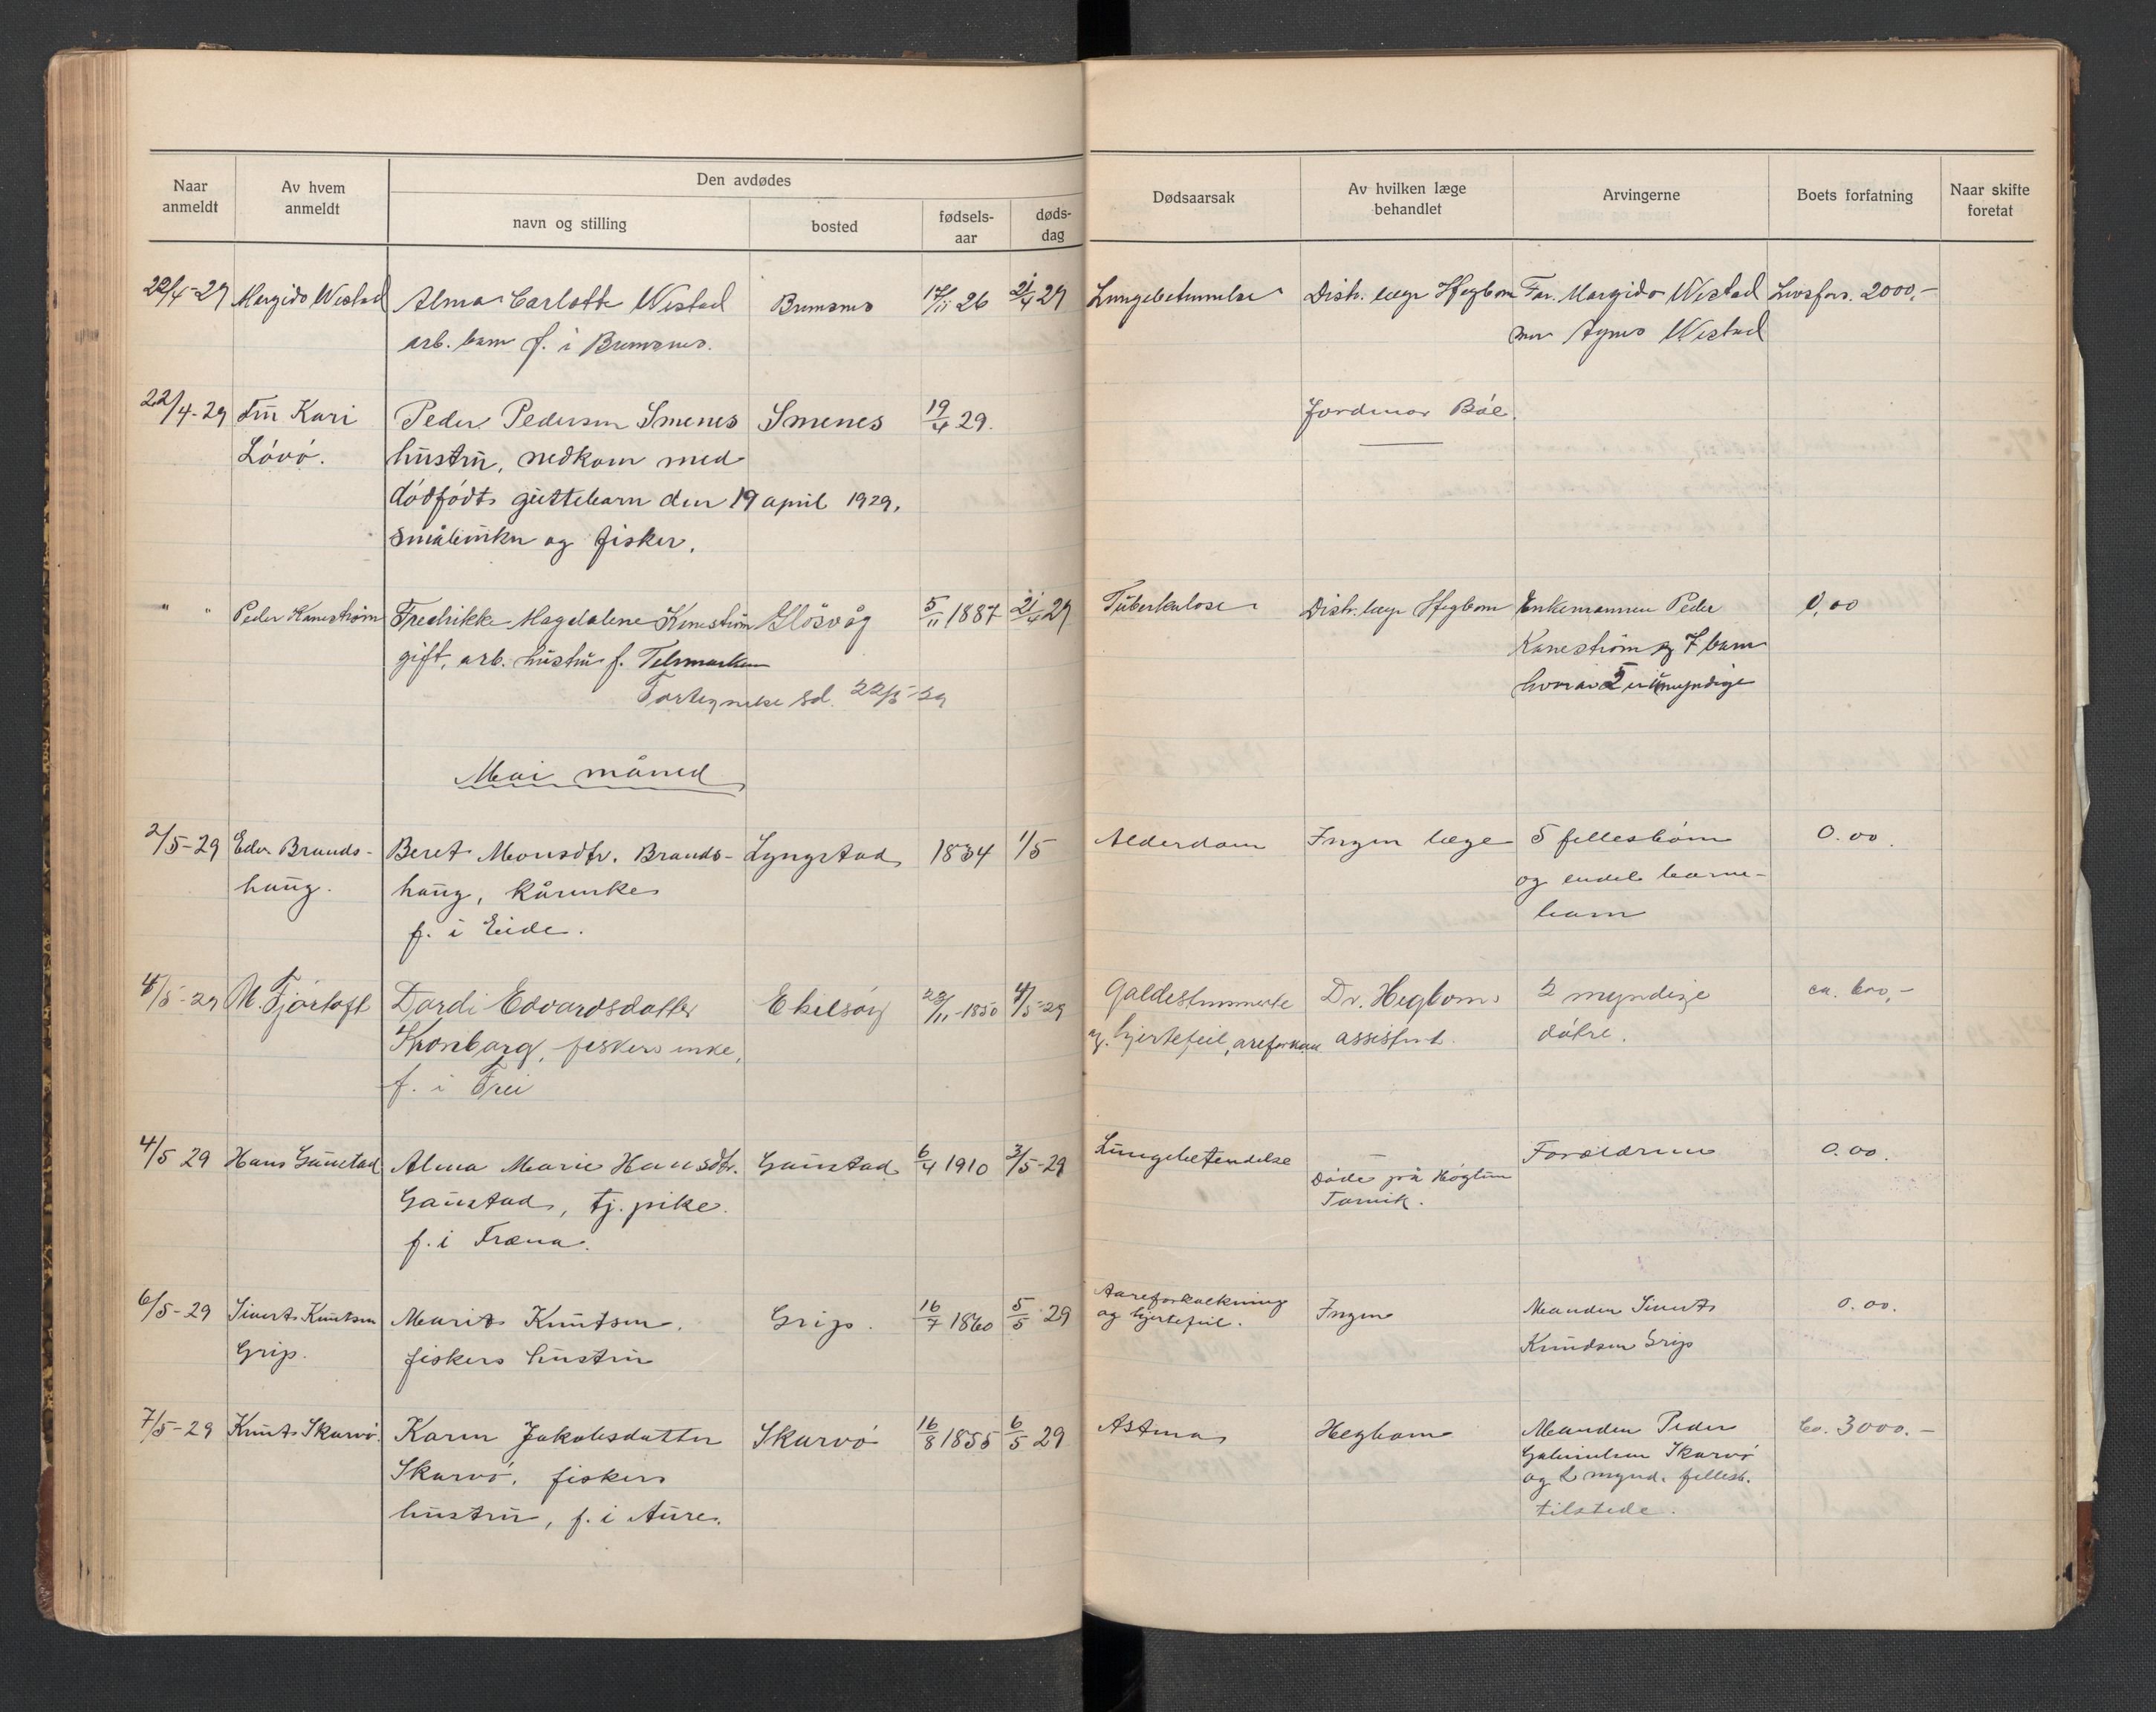 Naar anmeldt
Av hvem anmeldt
Den avdødes
navn og stilling
bosted
fødsels-aar
døds-dag
Dødsaarsak
Av hvilken læge behandlet
Arvingerne
Boets forfatning
Naar skifte foretat
22/4-29 Margido Westad Alma Carlotte Westad Bremsnes 17/11 26 21/4 29 Lungebetennelse Distr. læge Hegbom Far. Margido Westad Livsfors. 2000,-
arb. barn f. i Bremsnes. mor Agnes Westad
22/4-29 Fru Kari Peder Pedersen Smenes Smenes 19/4 29. Jordmor Böe.
Lövö. hustru, nedkom med
dödfödt guttebarn den 19 april 1929.
småbruker og fisker.
" " Peder Kaneström Fredrikke Magdalene Kaneström Glösvåg 5/11 1887 21/4 29 Tuberkulose Distr. læge Hegbom Enkemannen Peder 0,00
gift, arb. hustru f. Telemarken Kaneström og 7 barn
Fortegnelse sd. 22/5-29 hvorav 5 er umyndige
Mai måned
2/5-29 Eder Brands- Beret Monsdtr. Brands- Lyngstad 1834 1/5 Alderdom Ingen læge 5 fellesbörn 0.00.
haug. haug, kårenke og endel barne-
f. i Eide. barn
4/5-29 M. Fjörtoft Dordi Edvardsdatter Ekilsöy 29/11-1850 4/5-29 Galdestensmerte Dr. Hegboms 2 myndige ca. 600,-
Kronborg, fiskers enke, og hjertefeil, assistent. döttre.
f. i Frei
4/5 29 Hans Gaustad Alma Marie Hansdtr. Gaustad 6/4 1910 3/5-29 Lungebetendelse Döde på Högtun Forældrene 0.00.
Gaustad, tj. pike. Torvik.
f. i Fræna.
6/5-29 Sivert Knutsen Marit Knutsen. Grip. 16/7 1860 5/5 29 Aareforkalkning Ingen Manden Sivert 0.00.
Grip. fiskers hustru og hjertefeil. Knudsen Grip
7/5-29 Knut Skarvö. Karen Jakobsdatter Skarvö 16/8 1855 6/5 29 Astma Hegbom Manden Peder Ca. 3000.-
Skarvö, fiskers Gabrielsen Skarvö
og 2 mynd. fellesb.
hustru, f. i Aure. tilstede.